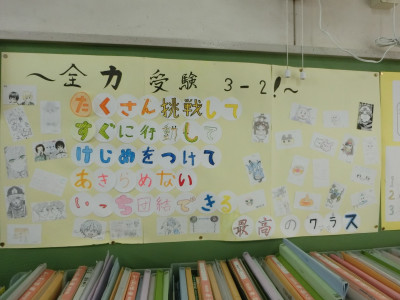 ～全力 受験 3-2!～
たくさん挑戦して
すぐに行動して
けじめをつけて
あきらめない
いっち団結できる
最高のクラス
1
2
3